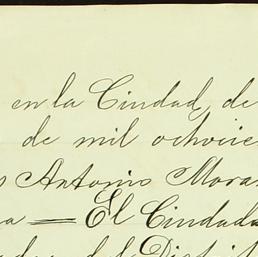 en la Ciudad, de
de mil ochocie
s Antonio Mora
a = El Ciudada